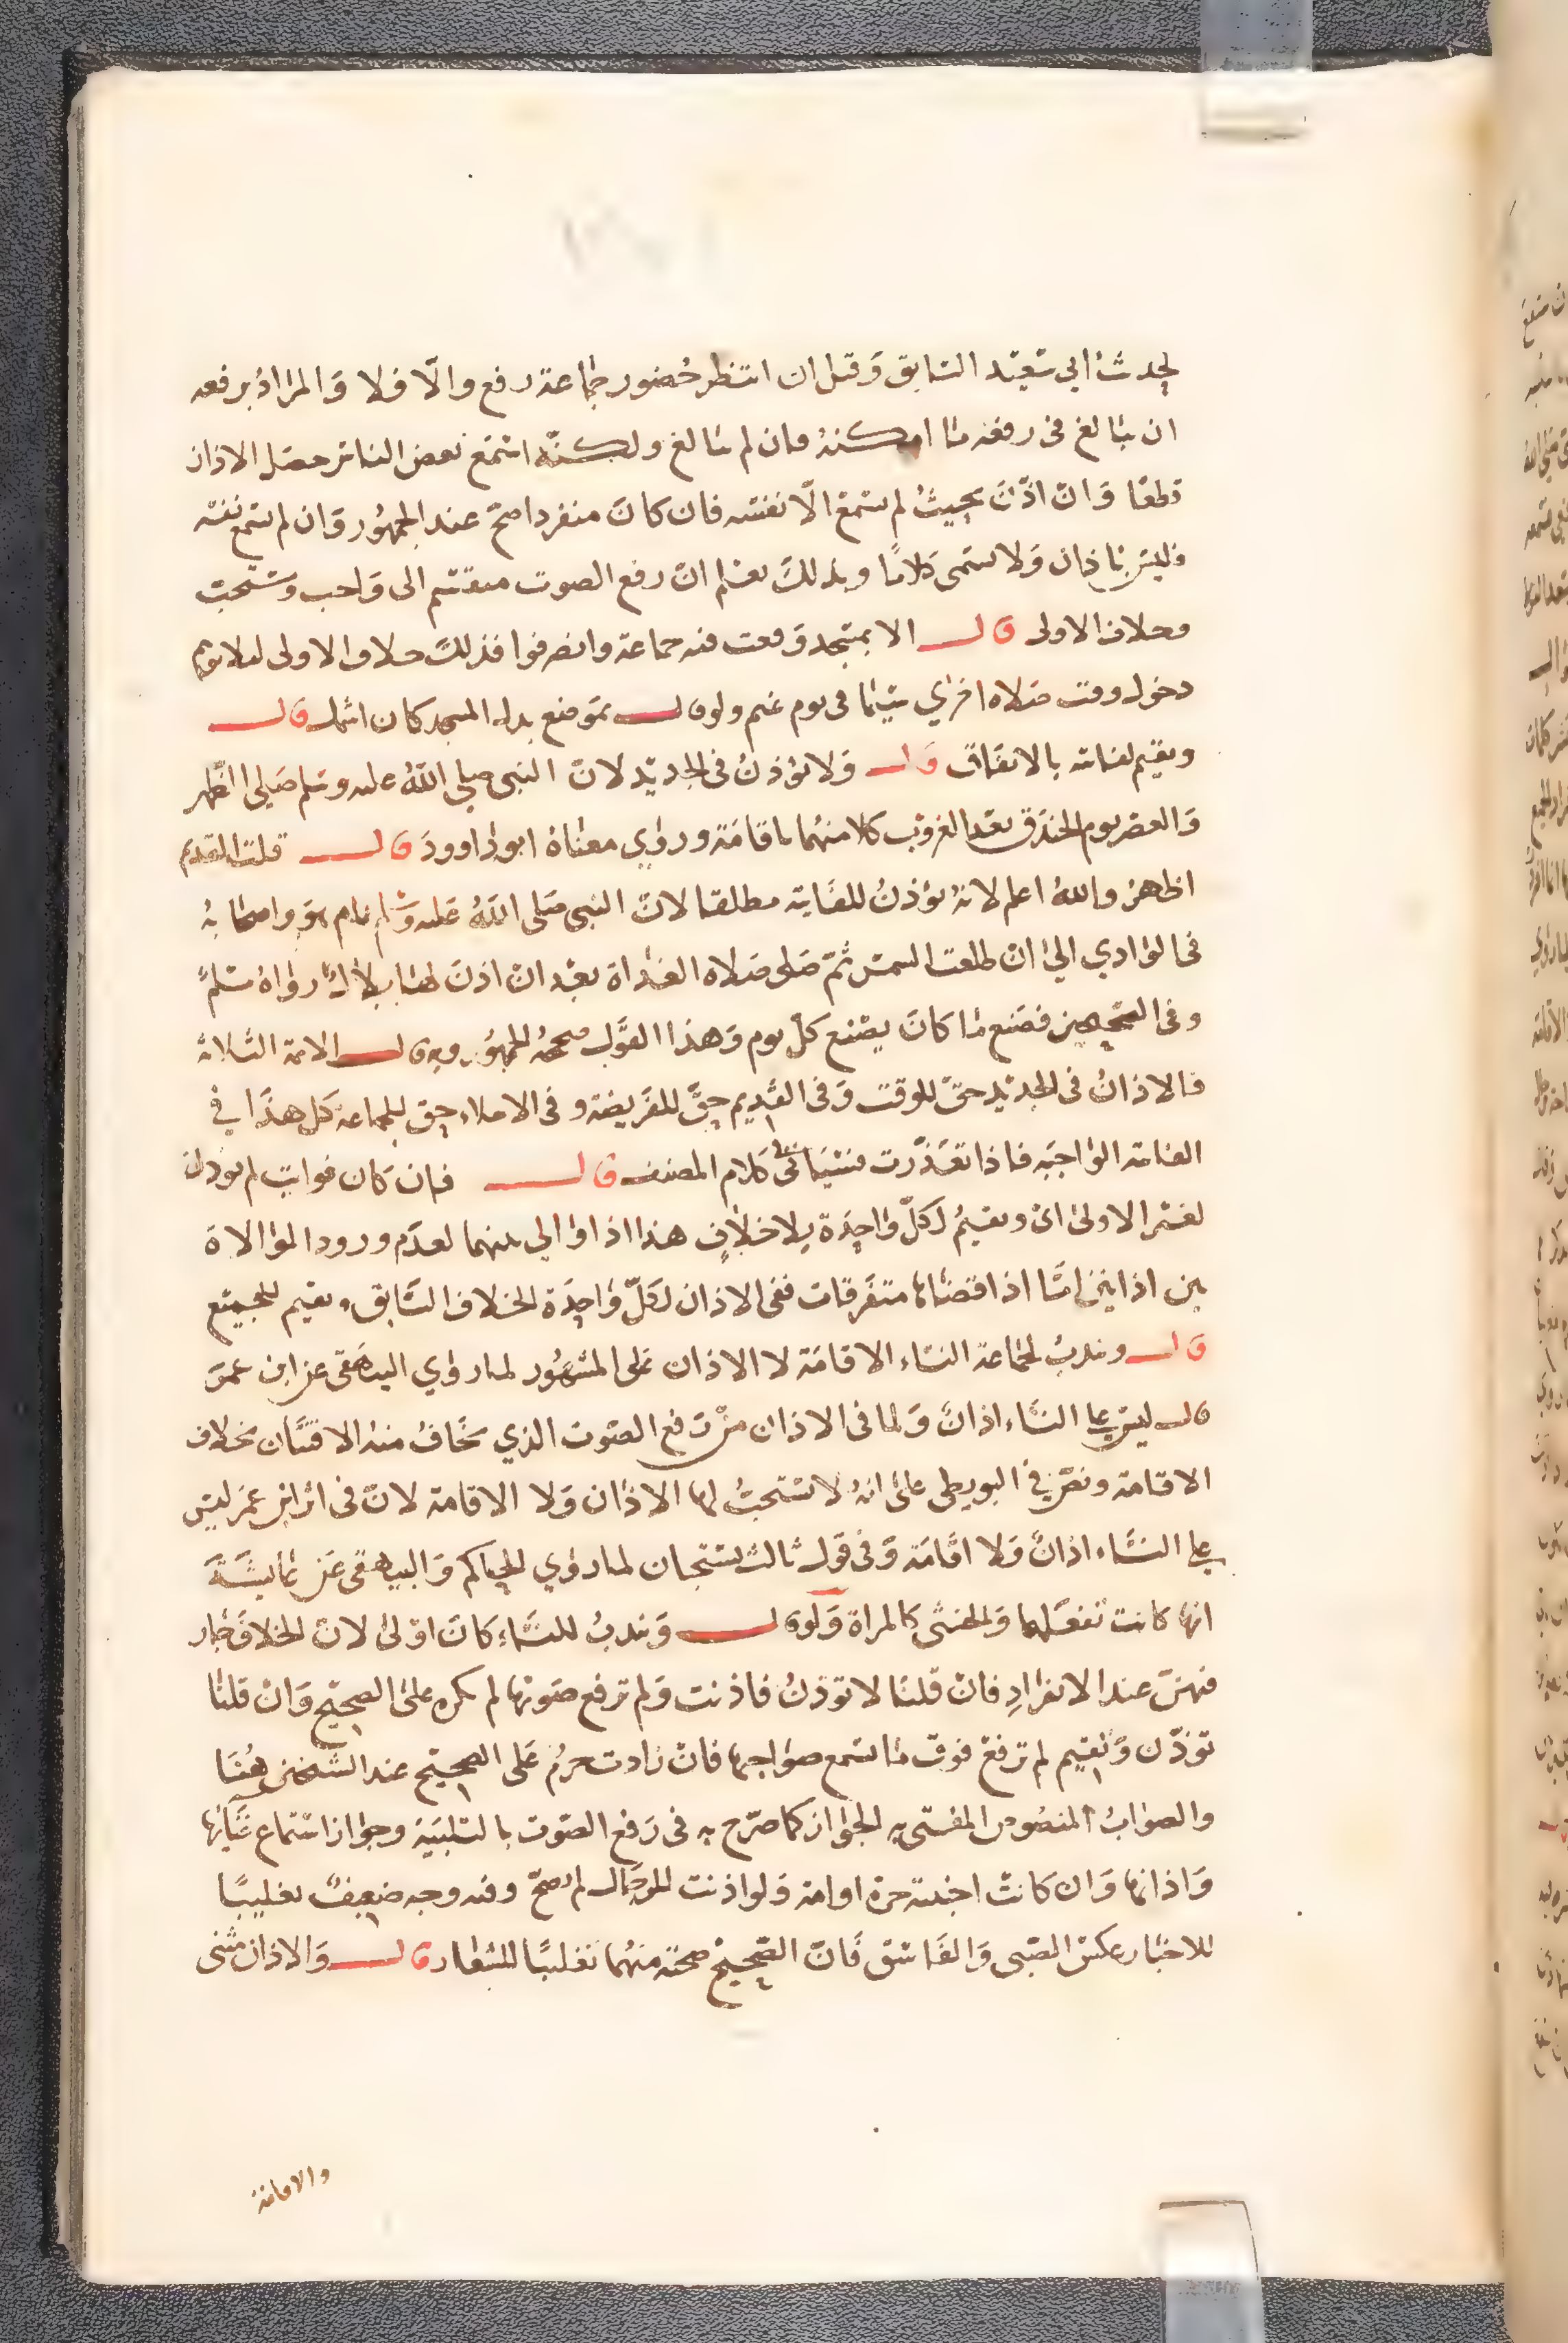 لحديث ابي سعيد السابق وقيل ان انتظر حضور جماعة رفع والا فلا والمراد برفعه
ان يبالغ في رفعه ما امكنه فان لم يبالغ ولكنه اسمع بعض الناس حصل الاذان
قطعا وان اذن بحيث لم يسمع الا نفسه فان كان منفردا صح عند الجمهور وان لم يسمع نفسه
فليس باذان ولا يسمى كلاما وبذلك يعلم ان رفع الصوت منقسم الى واجب ومستحب
وخلاف الاولى قال الا بمسجد وقعت فيه جماعة وانصرفوا فذلك خلاف الاولى ليلا يوهم
دخول وقت صلاه اخري سيما في يوم غيم ولو قال بموضع بدل المسجد كان اشمل قال
ويقيم لفائتة بالاتفاق قال ولا يؤذن في الجديد لان النبي صلي الله عليه وسلم صلي الظهر
والعصر يوم الخندق بعد الغروب كلا منهما باقامة وروي معناه ابو داوود قال قلت القديم
اظهر والله اعلم لانه يؤذن للفايتة مطلقا لان النبي صلى الله عليه وسلم نام هو واصحابه
في الوادي الي ان طلعت الشمس ثم صلى صلاه الغداة بعد ان اذن لها بلال رواه مسلم
وفي الصحيحين فصنع ما كان يصنع كل يوم وهذا القول صححه الجمهور وبه قال الائمة الثلاثة
فالاذان في الجديد حق للوقت وفي القديم حق للفريضة وفي الاملاء حق للجماعة كل هذا في
الفائتة الواجبة فاذا تعددت فسياتي في كلام المصنف قال فان كان فوايت لم يؤذن
لغير الاولى اي ويقيم لكل واحدة بلا خلاف هذا اذا والي بينهما لعدم ورود الموالاة
بين اذانين اما اذا قضاها متفرقات ففي الاذان لكل واحدة الخلاف السابق ويقيم للجميع
قال ويندب لجماعة النساء الاقامة لا الاذان على المشهور لما روي البيهقي عن ابن عمر
قال ليس على النساء اذان ولما في الاذان من رفع الصوت الذي يخاف منه الافتتان بخلاف
الاقامة ونص في البويطي على انه لا يستحب لها الاذان ولا الاقامة لان في اثر ابن عمر ليس
على النساء اذان ولا اقامة وفي قول ثالث يستحبان لما روي الحاكم والبيهقي عن عائشة
انها كانت تفعلهما والخنثى كالمراة ولو قال ويندب للنساء كان اولى لان الخلاف جار
فيهن عند الانفراد فان قلنا لا تؤذن فاذنت ولم ترفع صوتها لم يكره على الصحيح وان قلنا
تؤذن وتقيم لم ترفع فوق ما تسمع صواحبها فان زادت حرم على الصحيح عند الشيخين هنا
والصواب المنصوص المفتى به الجواز كما صرح به في رفع الصوت بالتلبية وجواز استماع غنائها
واذانها وان كانت اجنبية حرة او امة ولو اذنت للرجال لم يصح وفيه وجه ضعيف تغليبا
للاخبار عكس الصبي والفاسق فان الصحيح صحته منهما تغليبا للشعار قال والاذان مثنى
والاقامة